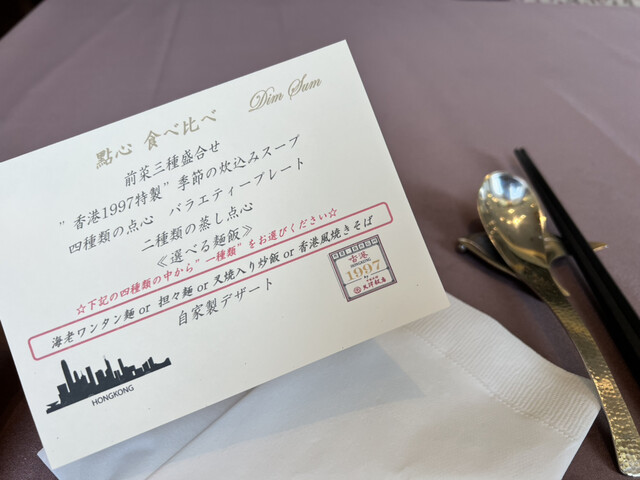 Dim Sum
點心 食べ比べ
前菜三種盛合せ
"香港1997特製" 季節の炊込みスープ
四種類の点心 バラエティープレート
二種類の蒸し点心
《選べる麺飯》
☆下記の四種類の中から"一種類"をお選びください☆
海老ワンタン麺 or 担々麺 or 叉焼入り炒飯 or 香港風焼きそば
自家製デザート
HONGKONG
1997